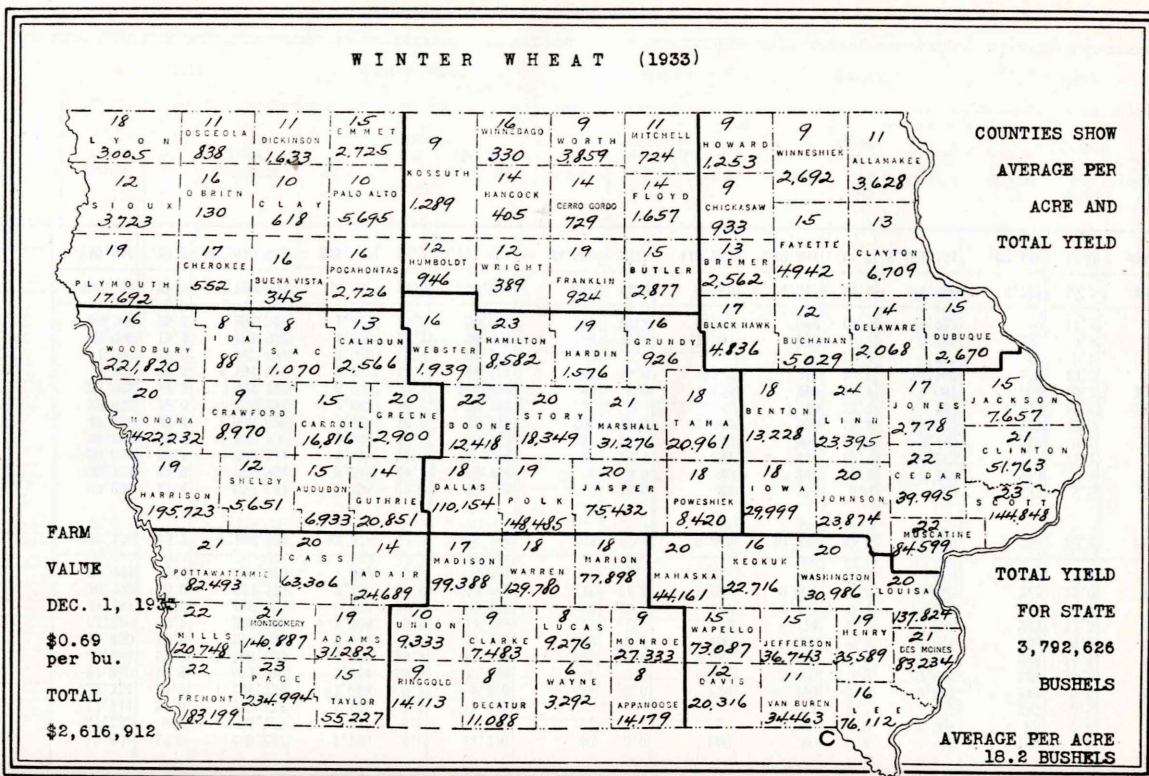 WINTER WHEAT (1933)
COUNTIES SHOW
AVERAGE PER
ACRE AND
TOTAL YIELD
18
LYON
3.005
11
OSCEOLA
838
11
DICKINSON
1.633
15
EMMET
2.725
9
KOSSUTH
1.289
16
WINNEBAGO
330
9
WORTH
3.859
11
MITCHELL
724
9
HOWARD
1.253
9
WINNESHIEK
2,692
11
ALLAMAKEE
3,628
12
SIOUX
3.723
16
O BRIEN
130
10
CLAY
618
10
PALO ALTO
5,695
14
HANCOCK
405
14
CERRO GORDO
729
14
FLOYD
1.657
9
CHICKASAW
933
15
FAYETTE
4942
13
CLAYTON
6,709
19
PLYMOUTH
17.692
17
CHEROKEE
552
16
BUENA VISTA
345
16
POCAHONTAS
2,726
12
HUMBOLDT
946
12
WRIGHT
389
19
FRANKLIN
924
15
BUTLER
2,877
13
BREMER
2,562
16
WOODBURY
221,820
8
IDA
88
8
SAC
1.070
13
CALHOUN
2,566
16
WEBSTER
1.939
23
HAMILTON
8582
19
HARDIN
1.576
16
GRUNDY
926
17
BLACK HAWK
4.836
12
BUCHANAN
5.029
14
DELAWARE
2,068
15
DUBUQUE
2,670
20
MONONA
422,232
9
CRAWFORD
8,970
15
CARROLL
16,816
20
GREENE
2,900
22
BOONE
12.418
20
STORY
18,349
21
MARSHALL
31.276
18
TAMA
20,961
18
BENTON
13,228
24
LINN
23,395
17
JONES
2.778
15
JACKSON
7.657
21
CLINTON
51.763
19
HARRISON
195,723
12
SHELBY
5.651
15
AUDUBON
6.933
14
GUTHRIE
20,851
18
DALLAS
110,154
19
POLK
148,485
20
JASPER
75432
18
POWESHIEK
8.420
18
IOWA
29,999
20
JOHNSON
23,874
22
CEDAR
39.995
23
SCOTT
144.848
22
MUSCATINE
84.599
21
POTTAWATTAMIE
82.493
20
CASS
63,306
14
ADAIR
24,689
17
MADISON
99.388
18
WARREN
129.780
18
MARION
77.898
20
MAHASKA
44,161
16
KEOKUK
22.716
20
WASHINGTON
30.986
20
LOUISA
137.824
22
MILLS
20,748
21
MONTGOMERY
140,887
19
ADAMS
31.282
10
UNION
9,333
9
CLARKE
7.483
8
LUCAS
9,276
9
MONROE
27.333
15
WAPELLO
73.087
15
JEFFERSON
36,743
19
HENRY
35,589
21
DES MOINES
83,234
22
FREMONT
183,199
23
PAGE
234,994
15
TAYLOR
55.227
9
RINGGOLD
14.113
8
DECATUR
11.088
6
WAYNE
3.292
8
APPANOOSE
14.179
12
DAVIS
20,316
11
VAN BUREN
34.463
16
LEE
76,112
C
FARM
VALUE
DEC. 1, 1933
$0.69
per bu.
TOTAL
$2,616,912
TOTAL YIELD
FOR STATE
3,792,626
BUSHELS
AVERAGE PER ACRE
18.2 BUSHELS